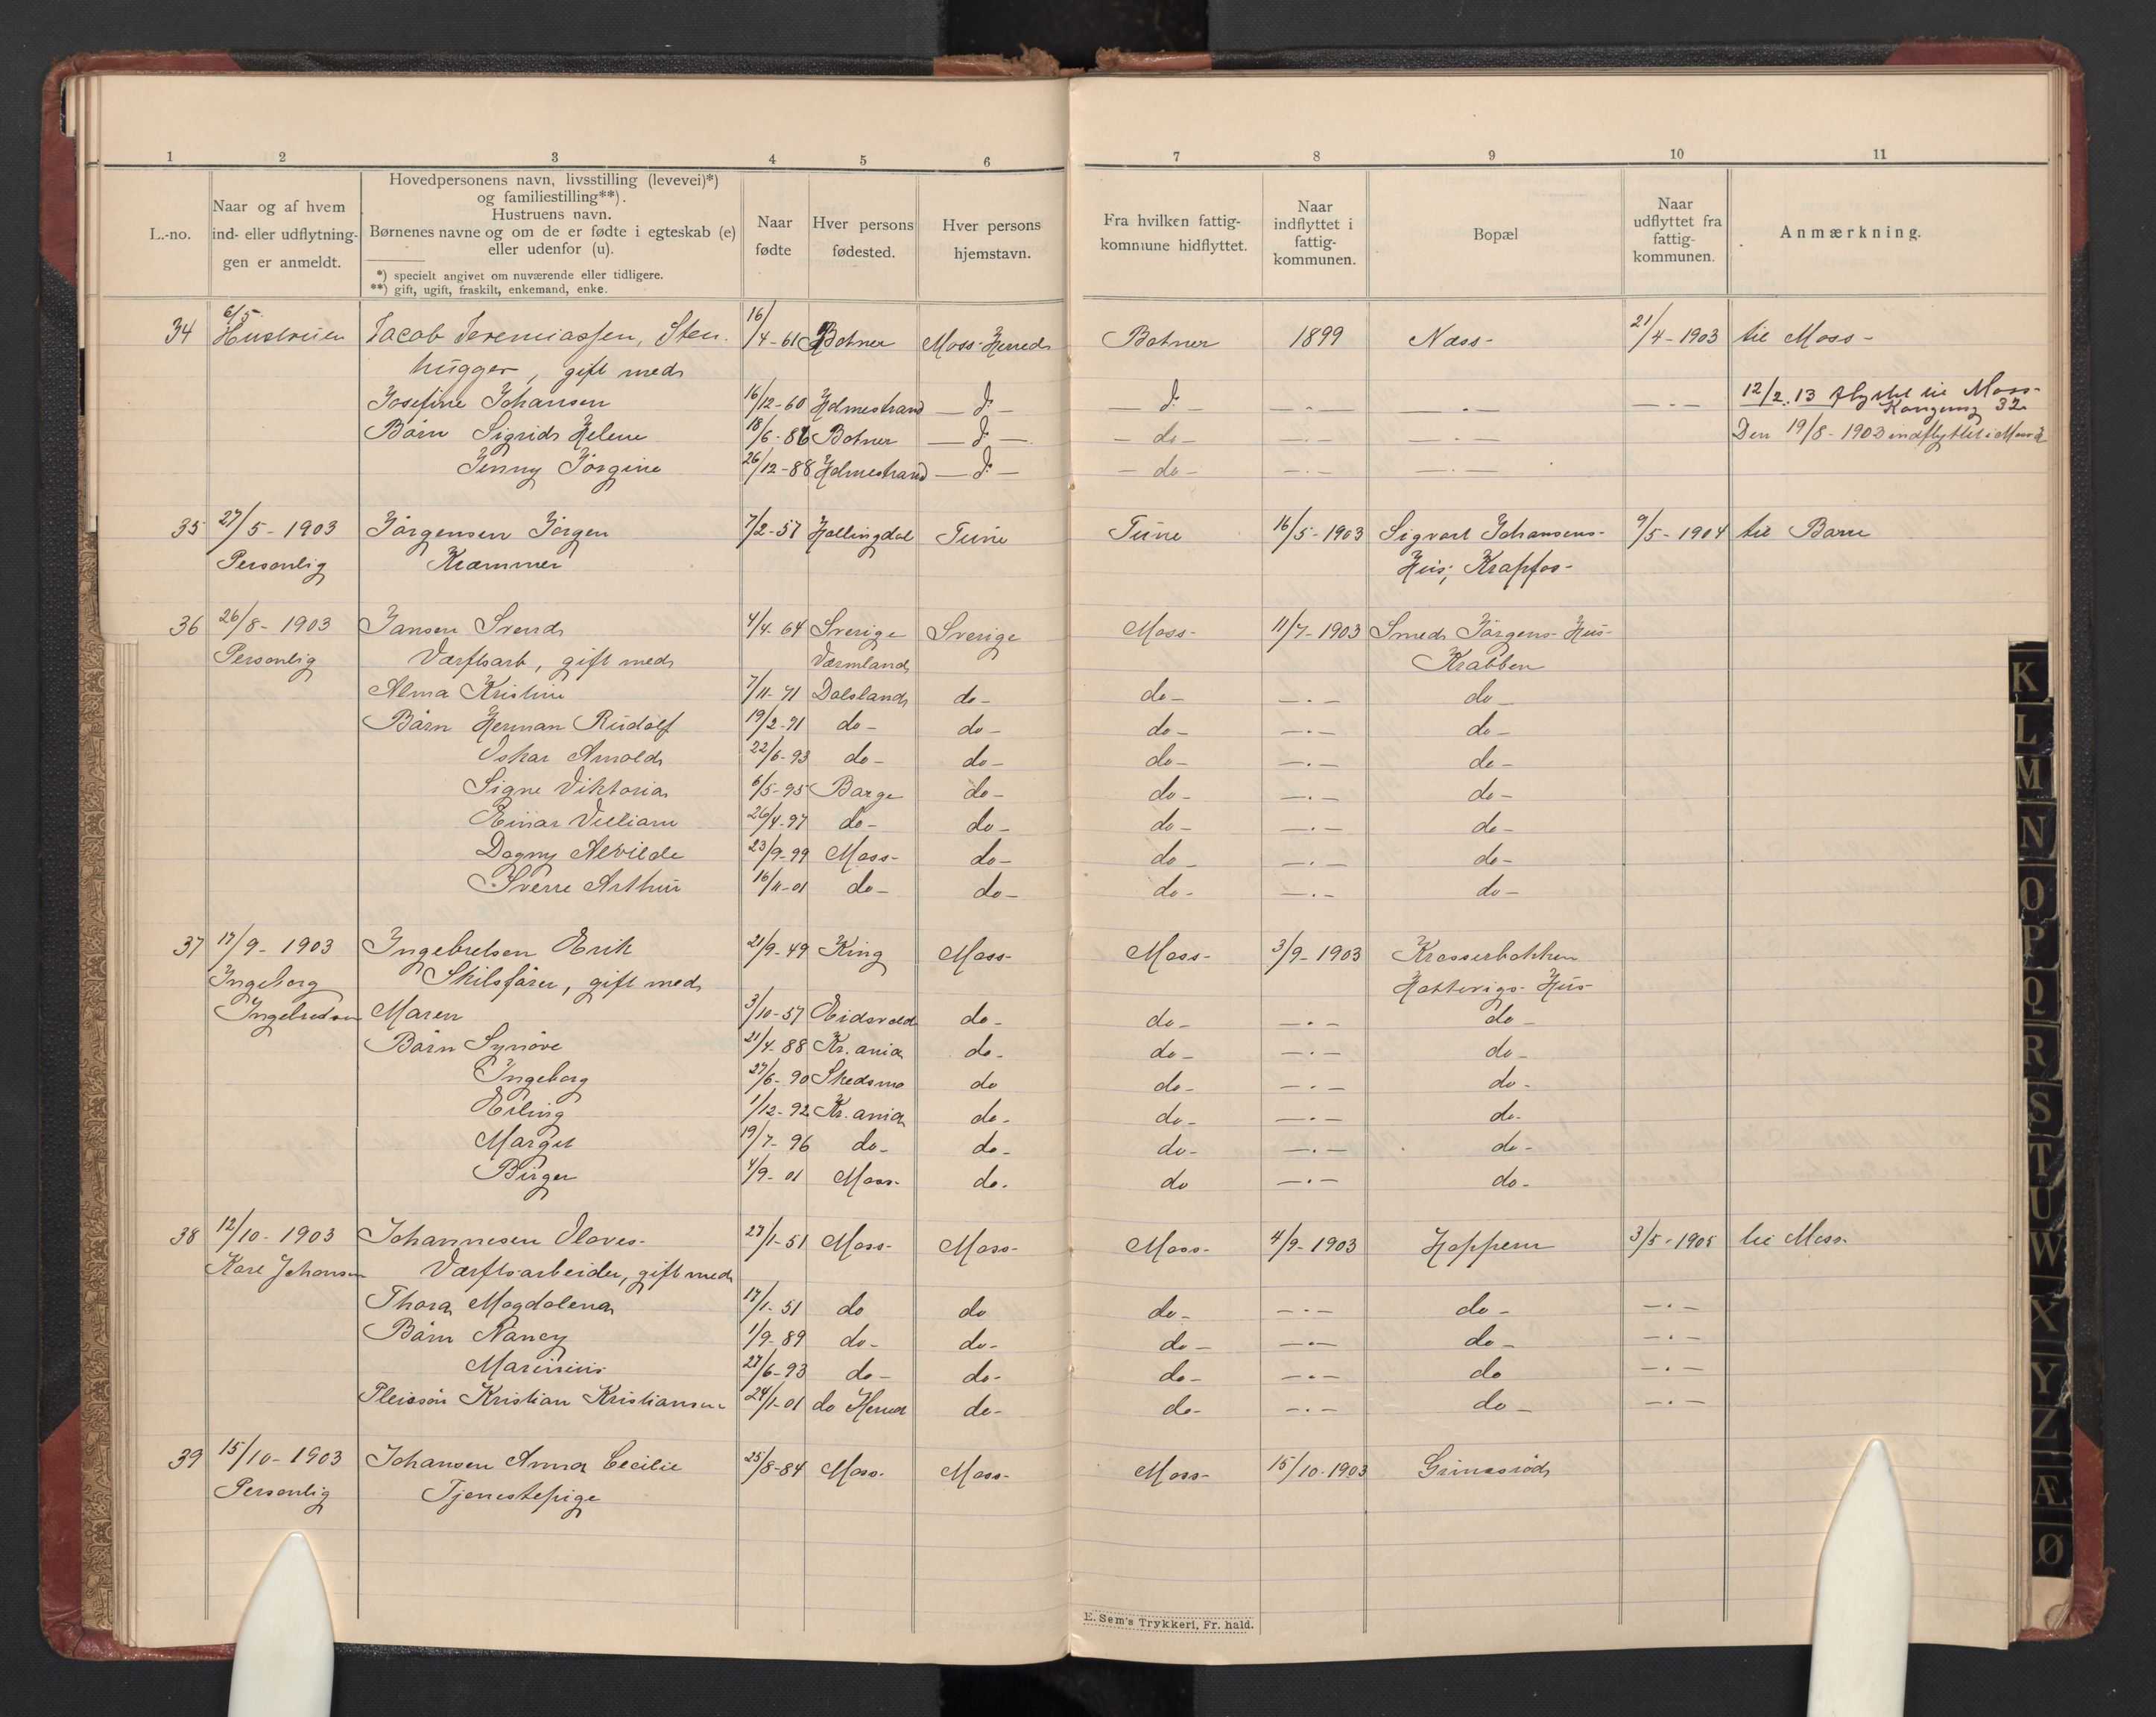 1 2 3 4 5 6 7 8 9 10 11
L.-no.
Naar og af hvem
ind- eller udflytnin-
gen er anmeldt.
Hovedpersonens navn, livsstilling (levevei)*)
og familiestilling**).
Hustruens navn.
Børnenes navne og om de er fødte i egteskab (e)
eller udenfor (u).
*) specielt angivet om nuværende eller tidligere.
**) gift, ugift, fraskilt, enkemand, enke.
Naar
fødte
Hver persons
fødested.
Hver persons
hjemstavn.
Fra hvilken fattig-
kommune hidflyttet.
Naar
indflyttet i
fattig-
kommunen.
Bopæl
Naar
udflyttet fra
fattig-
kommunen.
Anmærkning.
34 6/5 Hustruen Jacob Jeremiassen, Sten- 16/4-61 Botner Moss Herred Botner 1899 Næss- 21/4-1903 til Moss-
hugger, gift med
Josefine Johansen 16/12-60 Holmestrand — d: — — d: — —.— —.— —.— 12/2.13 flyttet til Moss-
32
Børn Sigrid Helene 18/6-86 Botner — d: — — do — —.— —.— Den 19/8-1903 indflyttet i Moss
Jenny Jørgine 26/12-88 Holmestrand — d: — — do — —.— —.—
35 27/5-1903 Jørgensen Jørgen 7/2-57 Hallingdal Tune Tune 16/5-1903 Sigvart Johansens- 9/5-1904 til Barre
Personlig Kræmmer Hus, Krapfos-
36 26/8-1903 Jansen Svend 4/4-64 Sverige Sverige Moss- 11/7-1903 Smed Jørgens- Hus-
Personlig Værftsarb, gift med Værmland Krabben
Alma Kristine 7/11-71 Dalsland do- do- —.— do-
Børn Herman Rudolf 19/2-91 do- do- do- —.— do-
Oskar Arnold 22/6-93 do- do- do- —.— do-
Signe Viktoria 6/5-95 Barge do- do- —.— do-
Einar Villiam 26/4-97 do- do- do- —.— do-
Dagny Alvilde 23/9-99 Moss- do- do- —.— do-
Sverre Arthur 16/11-01 do- do- do- —.— do-
37 17/9-1903 Ingebretsen Erik 21/9-49 Ring Moss- Moss- 3/9-1903 Krosserbakken
Ingeborg Skibsfører, gift med Hus-
Ingebretsen Maren 3/10-57 Eidsvold do- do- —.— do-
Børn Synøve 21/4-88 Kr.ania do- do- —.— do-
Ingeborg 27/6-90 Skedsmo do do- —.— do-
Erling 1/12-92 Kr.ania do- do- —.— do-
Margit 19/7-96 do- do- do- —.— do-
Birger 4/9-01 Moss- do. do —.— do-
38 12/10-1903 Johannesen Olaves- 27/1-51 Moss- Moss- Moss- 4/9-1903 Hoppern 3/5-1905 til Moss-
Karl Johansen Værftsarbeider, gift med
Thora Magdalena 17/1-51 do do do- —.— do- —.—
Børn Nancy 1/9-89 do- do- do- —.— do- —.—
Marinius 27/6-93 do- do- do- —.— do —.—
Pleiesøn Kristian Kristiansen 24/1-01 do Herred do- do- —.— do- —.—
39 15/10-1903 Johansen Anna Cecilie 25/8-84 Moss- Moss- Moss- 15/10-1903 Grimsrød
Personlig Tjenestepige
E. Sem's Trykkeri, Fr. hald.
K
L
M
N
O
P
Q
R
S
T
U
W
X
Y
Z
Æ
Ø